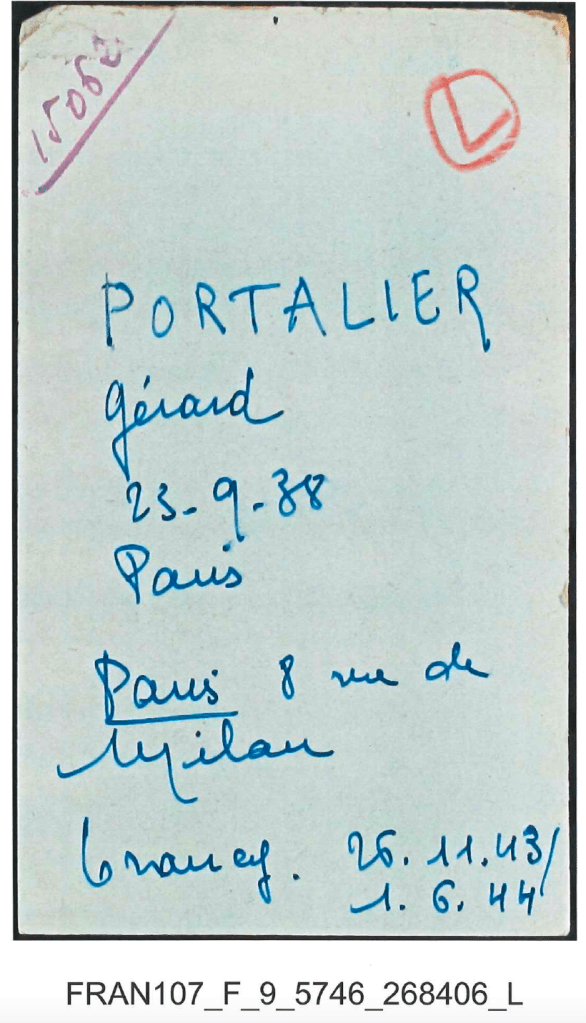 15062
L
PORTALIER
Gérard
23-9-38
Paris
Paris 8 rue de
Milan
Drancy. 26.11.43/
1.6.44
FRAN107_F_9_5746_268406_L